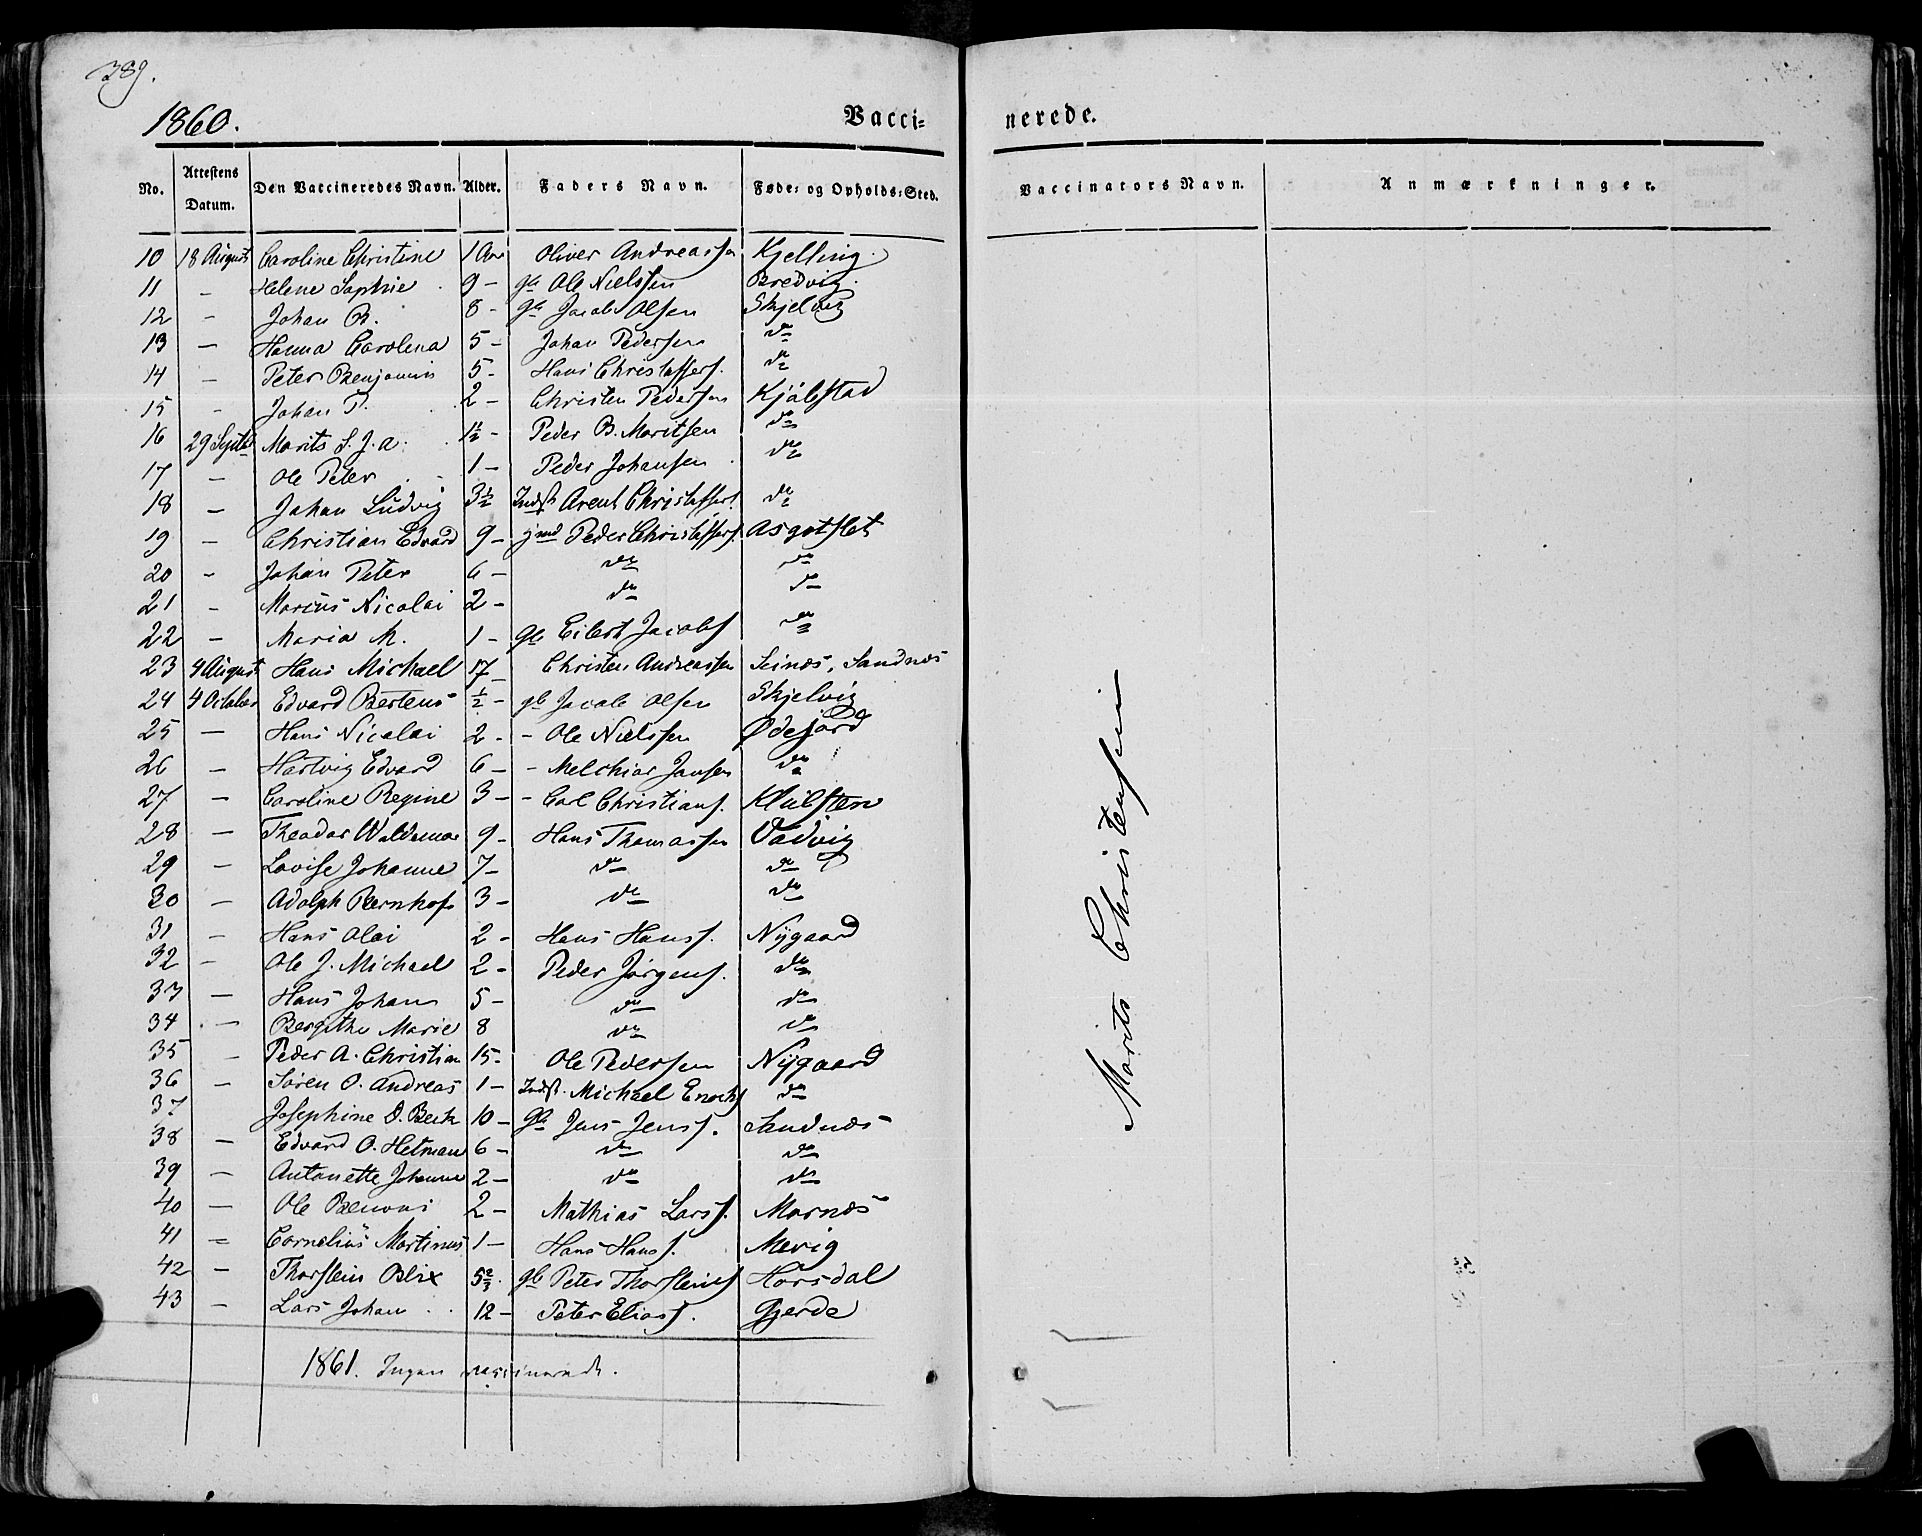 389.
1860.
Vacci-
nerede.
No. Attestens Datum. Den Vaccineredes Navn. Alder. Faders Navn. Føde- og Opholds-Sted. Vaccinators Navn. Anmærkninger.
10 18 August Caroline Christine 1 Aar Oliver Andreassen Kjelling.
11 - Helene Sophie 9 - gb Ole Nielssen Bredvig.
12 - Johan B. 8 - gb Jacob Olsen Skjelvig
13 - Hanna Carolina 5 - Johan Pedersen do
14 - Peter Benjamin 5 - Hans Christoffers. do
15 - Johan P. 2 - Christen Pedersen Kjølstad
16 29 Septbr Morits S. J. A. 1½ - Peder B. Moritsen do
17 - Ole Peter 1 - Peder Johansen do
18 - Johan Ludvig 3½ Indst Arent Christoffers. do
19 - Christian Edvard 9 - gmd Peder Christoffers. Asgotslet
20 - Johan Peter 6 - do do
21 - Marcus Nicolai 2 - do do
22 - Maria M. 1 - gb Eilert Jacobs do
23 4 August Hans Michael 17 - Christen Andreassen Seines, Sandnes
24 4 October Edvard Bertens ½ - gb Jacob Olsen Skjelvig
25 - Hans Nicolai 2 - - Ole Nielssen Ødejord
26 - Hartvig Edvard 6 - - Melchior Jansen do
27 - Caroline Regine 3 - - Carl Christians. Klulsten
28 - Theodor Waldemar 9 - Hans Thomassen Vadvig
29 - Lovise Johanne 7 - do do
30 - Adolph Bernhof 3 - do do
31 - Hans Olai 2 - Hans Hanss. Nygaard
32 - Ole J. Michael 2 - Peder Jørgens. do
33 - Hans Johan 5 - do do
34 - Bergithe Marie 8 do do
35 - Peder A. Christian 15 - Ole Pedersen Nygaard
36 - Søren O. Andreas 1 - Indst. Michael Enochs do
37 Josephine D. Beck 10 - gb Jens Jenss. Sandnes
38 - Edvard O. Hetman 6 - do do
39 - Antonette Johanne 2 - do do
40 - Ole Benoni 2 - Mathias Larss. Mornes
41 - Cornelius Martinus 1 - Hans Hanss. Mevig
42 - Thorstein Blix 5⅔. gb Peter Thorsteins Horsdal
43 - Lars Johan 12 - Peter Elias s. Gjerde
1861. Ingen vaccinerede.
Morits Christensen